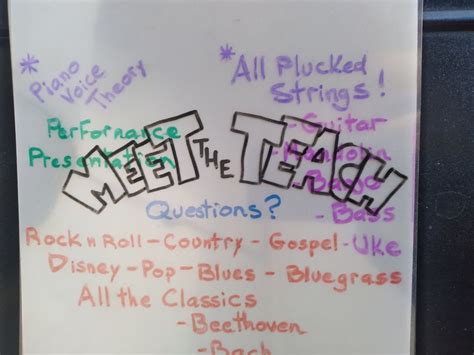 * Piano
Voice
Theory
Performance
Presentation
* All Plucked
Strings!
- Guitar
- Mandolin
- Banjo
- Bass
- Uke
MEET THE TEACH
Questions?
Rock n Roll - Country - Gospel
Disney - Pop - Blues - Bluegrass
All the Classics
- Beethoven
- Bach